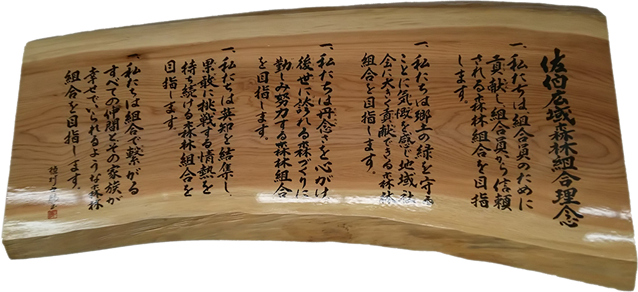 佐伯広域森林組合理念
一、私たちは組合員のために
貢献し組合員から信頼
される森林組合を目指
します。
一、私たちは郷土の緑を守る
ことに気概を感じ地域社
会に大きく貢献できる森林
組合を目指します。
一、私たちは丹念さを心がけ
後世に誇れる森づくりに
勤しみ努力する森林組合
を目指します。
一、私たちは英知を結集し、
果敢に挑戦する情熱を
持ち続ける森林組合を
目指します。
一、私たちは組合で繋がる
すべての仲間とその家族が
幸せでいられるような森林
組合を目指します。